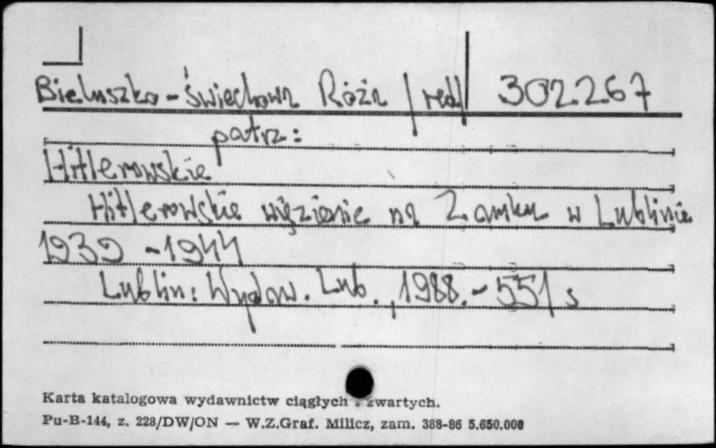 Bieluszko-Świechowa Róża /red/ 302267
patrz:
Hitlerowskie
Hitlerowskie więzienie na Zamku w Lublinie
1939-1944
Lublin: Wydaw. Lub., 1988.- 551 s
Karta katalogowa wydawnictw ciągłych i zwartych.
Pu-B-144, z. 228/DW/ON — W.Z.Graf. Milicz, zam. 388-86 5.650.000